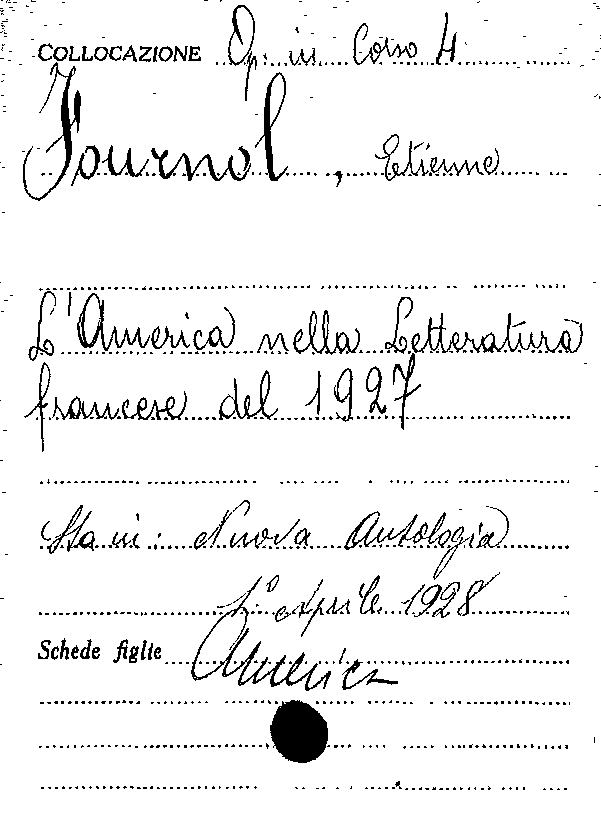 COLLOCAZIONE Op. in Corso 4
Fournol, Etienne
L'America nella Letteratura
francese del 1927
Sta in: Nuova Antologia
1.° Aprile 1928
Schede figlie America